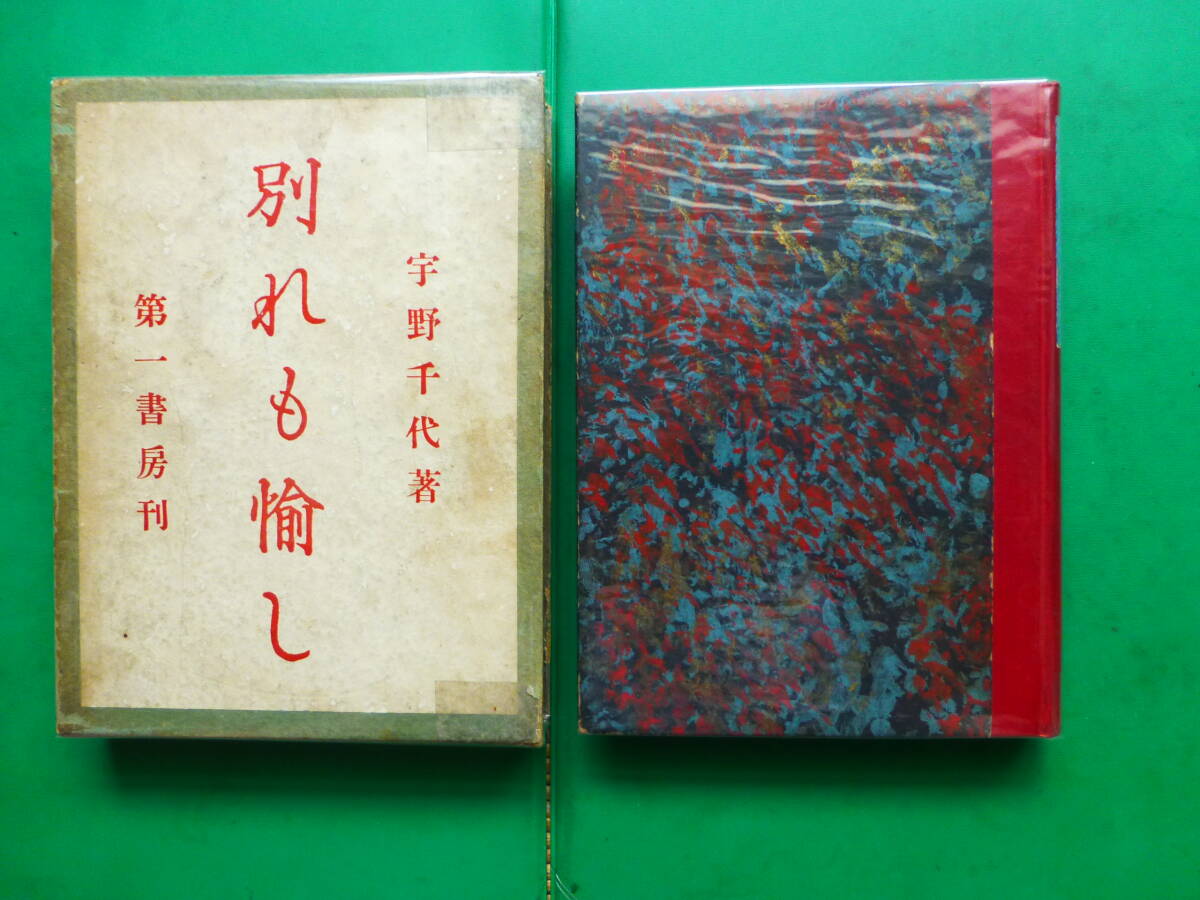 宇野千代著
別れも愉し
第一書房刊